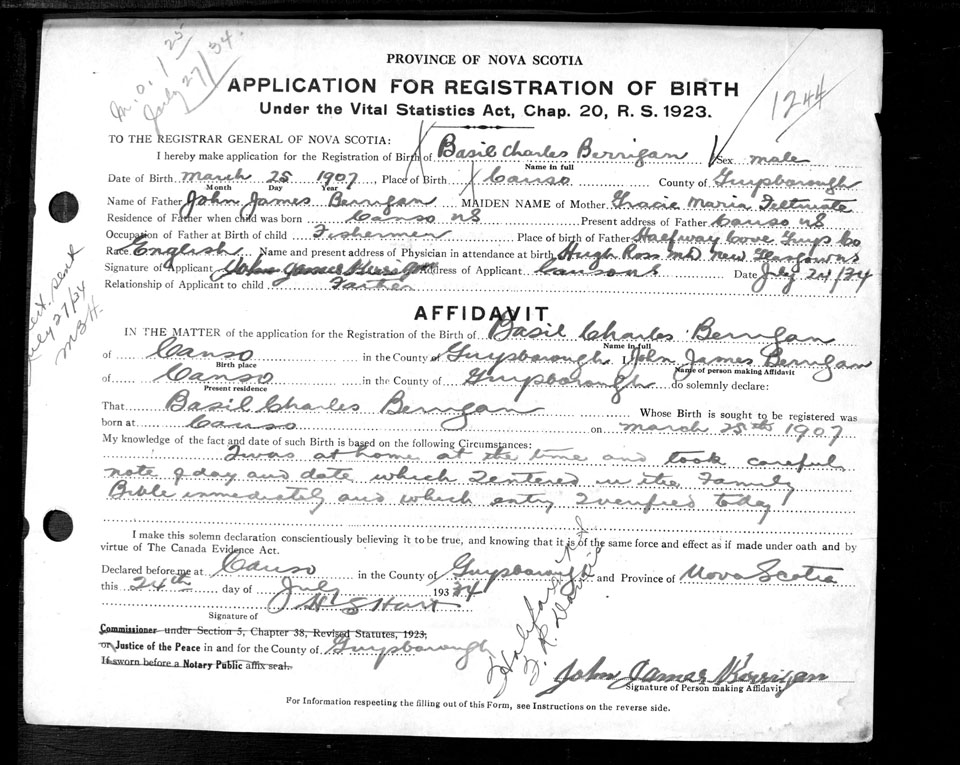 M.O. 1 25
July 27/34.
1244
PROVINCE OF NOVA SCOTIA
APPLICATION FOR REGISTRATION OF BIRTH
Under the Vital Statistics Act, Chap. 20, R. S. 1923.
TO THE REGISTRAR GENERAL OF NOVA SCOTIA:
I hereby make application for the Registration of Birth of Basil Charles Berrigan Sex male
Name in full
Date of Birth March 25 1907 Place of Birth Canso County of Guysborough
Month Day Year
Name of Father John James Berrigan MAIDEN NAME of Mother Gracie Maria
Residence of Father when child was born Canso NS Present address of Father Canso NS
Occupation of Father at Birth of child Fishermen Place of birth of Father Halfway Cove Guys Co
Race English Name and present address of Physician in attendance at birth Hugh Ross MD New Glasgow NS
Signature of Applicant John James Berrigan Address of Applicant Canso NS Date July 24/34
Relationship of Applicant to child Farther
Cert. sent
July 27/34
MBH.
AFFIDAVIT
IN THE MATTER of the application for the Registration of the Birth of Basil Charles Berrigan
Name in full
of Canso in the County of Guysborough I, John James Berrigan
Birth place Name of person making Affidavit
of Canso in the County of Guysborough do solemnly declare:
Present residence
That Basil Charles Berrigan Whose Birth is sought to be registered was
born at Canso on March 25th 1907
My knowledge of the fact and date of such Birth is based on the following Circumstances:
I was at home at the time and took careful
note of day and date which I entered in the Family
Bible immediately and which entry I verified today!
I make this solemn declaration conscientiously believing it to be true, and knowing that it is of the same force and effect as if made under oath and by
virtue of The Canada Evidence Act.
Declared before me at Canso in the County of Guysborough and Province of Nova Scotia
this 24th day of July 1934
H S Hart
Signature of
Commissioner under Section 5, Chapter 38, Revised Statutes, 1923,
or Justice of the Peace in and for the County of Guysborough
If sworn before a Notary Public affix seal.
John James Berrigan
Signature of Person making Affidavit
For Information respecting the filling out of this Form, see Instructions on the reverse side.